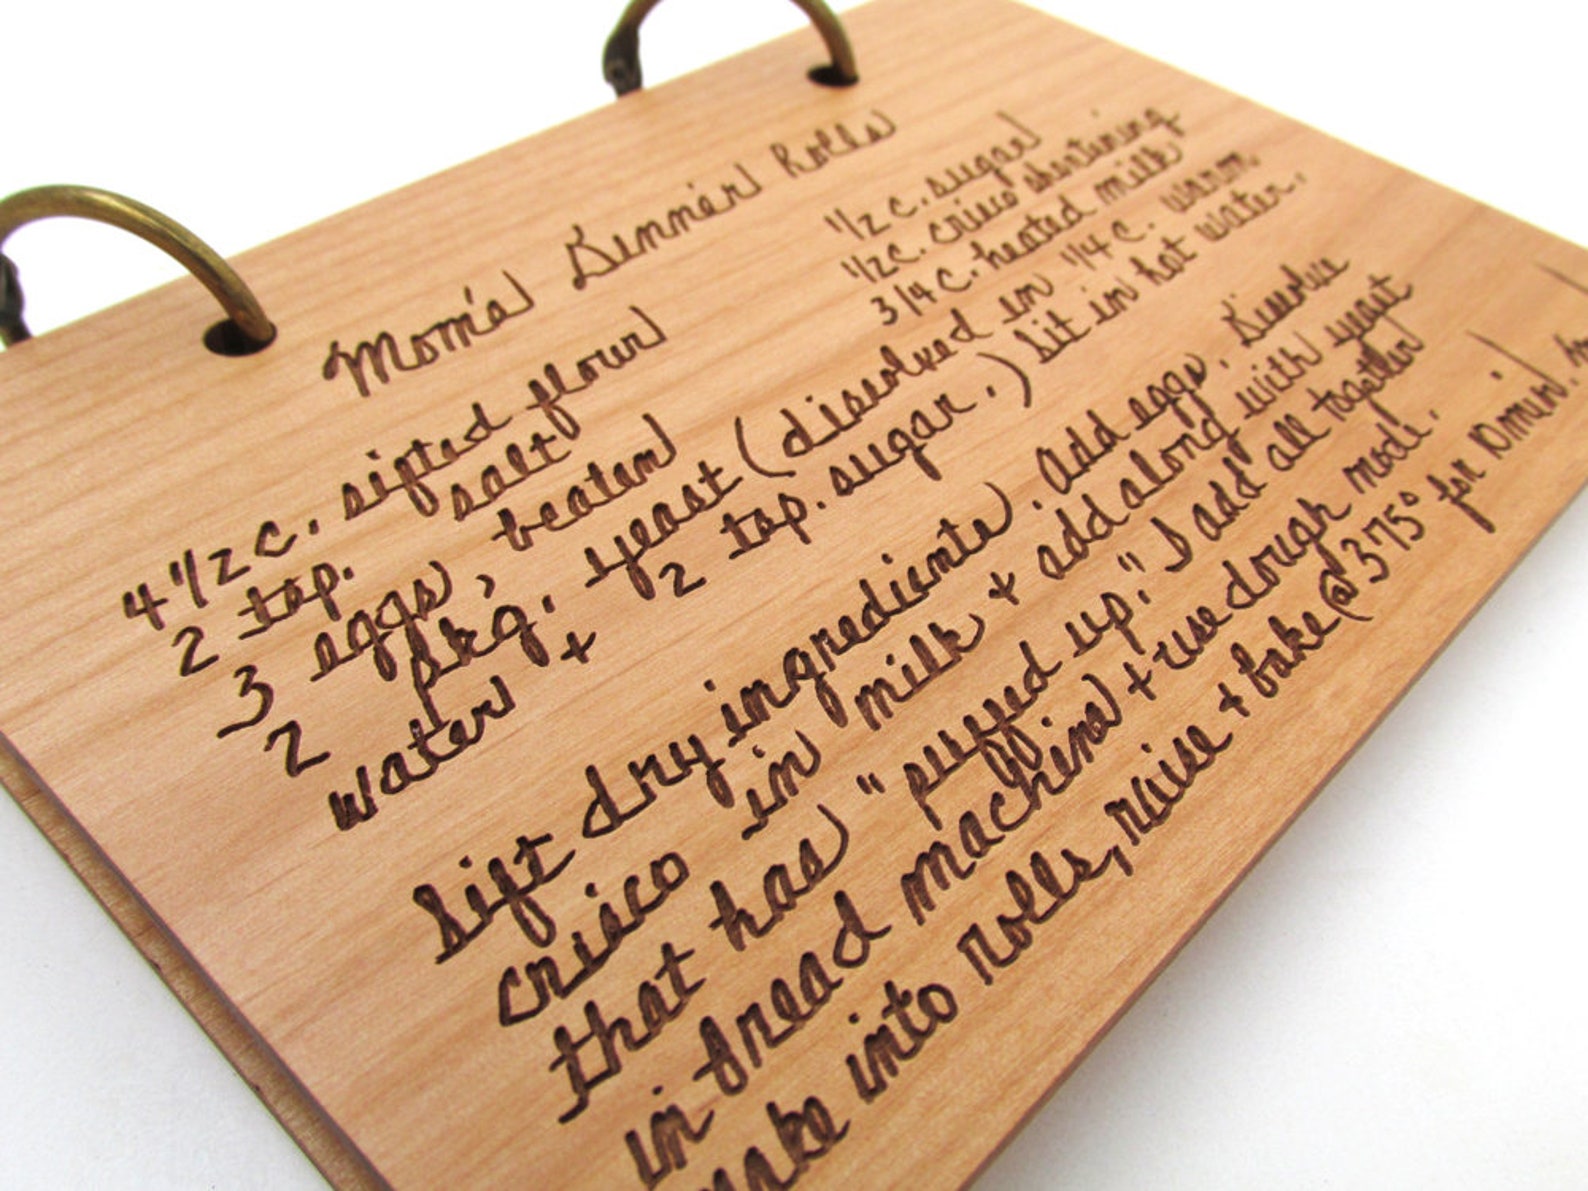 Mom's Dinner Rolls
4 1/2 c. sifted flour
1/2 c. sugar
2 tsp. salt
1/2 c. crisco shortening
3 eggs, beaten
3/4 c. heated milk
2 pkg. yeast (dissolved in 1/4 c. warm
water + 2 tsp. sugar.) Sit in hot water.
Sift dry ingredients. Add eggs. Dissolve
crisco in milk + add along with yeast
that has "puffed up." I add all together
in bread machine + use dough mode.
make into rolls, raise + bake @ 375° for 10 min.